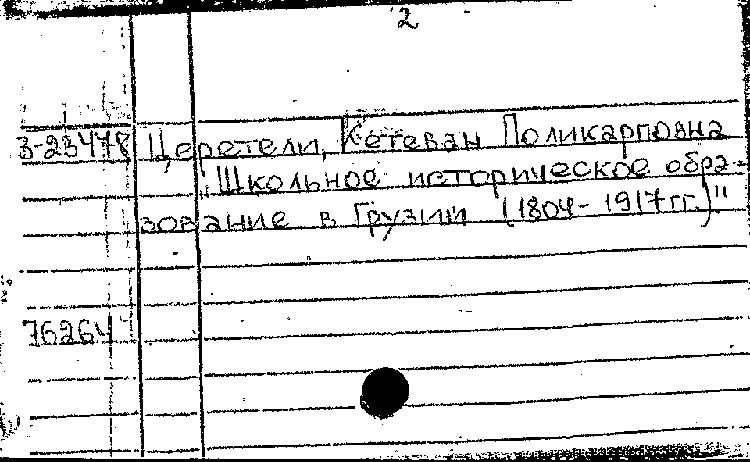 2
3-23478 Церетели, Кетеван Поликарповна
"Школьное историческое обра-
зование в Грузии (1804-1917гг.)"
76264